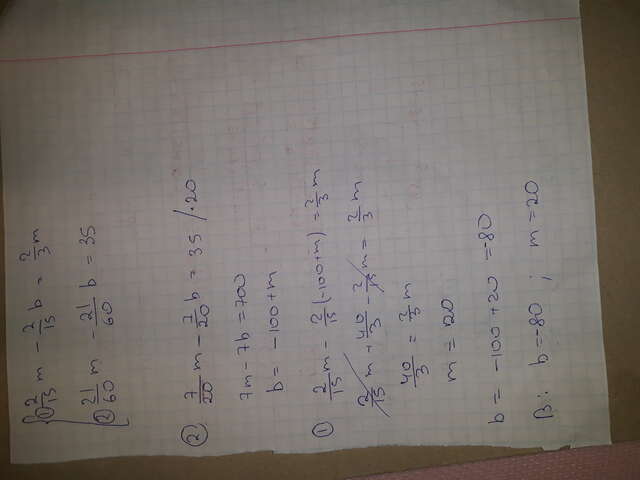 ① 2/15 m - 2/15 b = 2/3 m
② 21/60 m - 21/60 b = 35
② 7/20 m - 7/20 b = 35 /·20
7m - 7b = 700
b = -100 + m
① 2/15 m - 2/15 (-100+m) = 2/3 m
2/15 m + 40/3 - 2/15 m = 2/3 m
40/3 = 2/3 m
m = 20
b = -100 + 20 = -80
В: b = -80 ; m = 20